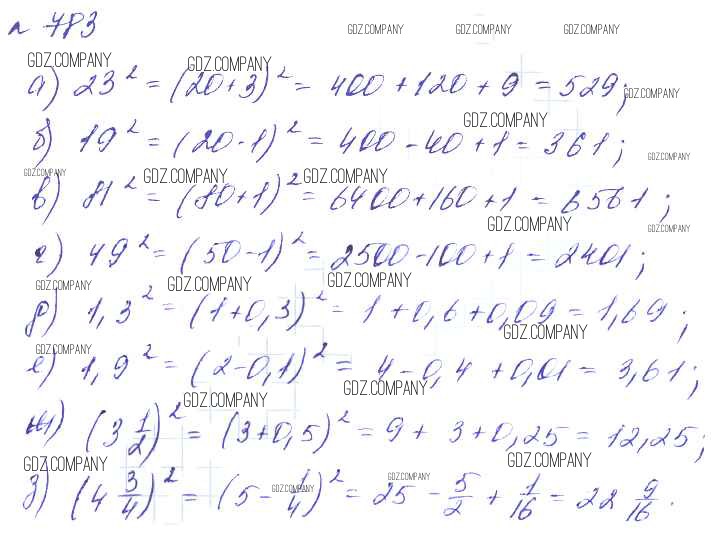 N 783
GDZ.COMPANY GDZ.COMPANY GDZ.COMPANY
GDZ.COMPANY GDZ.COMPANY
а) 23² = (20+3)² = 400+120+9 = 529;
GDZ.COMPANY
GDZ.COMPANY
б) 19² = (20-1)² = 400-40+1 = 361;
GDZ.COMPANY
GDZ.COMPANY GDZ.COMPANY GDZ.COMPANY
в) 81² = (80+1)² = 6400+160+1 = 6561;
GDZ.COMPANY GDZ.COMPANY
г) 49² = (50-1)² = 2500-100+1 = 2401;
GDZ.COMPANY GDZ.COMPANY GDZ.COMPANY
д) 1,3² = (1+0,3)² = 1+0,6+0,09 = 1,69;
GDZ.COMPANY
GDZ.COMPANY
е) 1,9² = (2-0,1)² = 4-0,4+0,01 = 3,61;
GDZ.COMPANY GDZ.COMPANY
ж) (3 1/2)² = (3+0,5)² = 9+3+0,25 = 12,25;
GDZ.COMPANY GDZ.COMPANY
з) (4 3/4)² = (5-1/4)² = 25-5/2+1/16 = 22 9/16.
GDZ.COMPANY GDZ.COMPANY